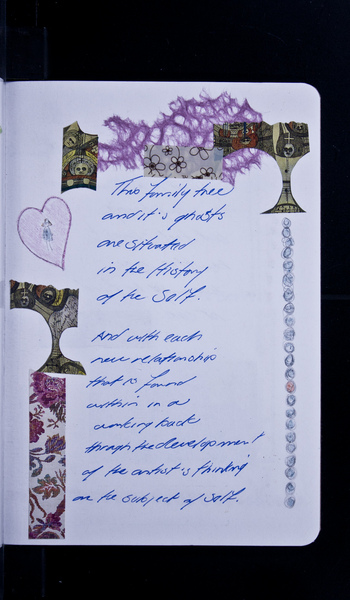 This family tree
and it's ghosts
are situated
in the History
of the Self.
And with each
new relationship
that is found
within is a
working back
through the development
of the artist's thinking
on the subject of self.